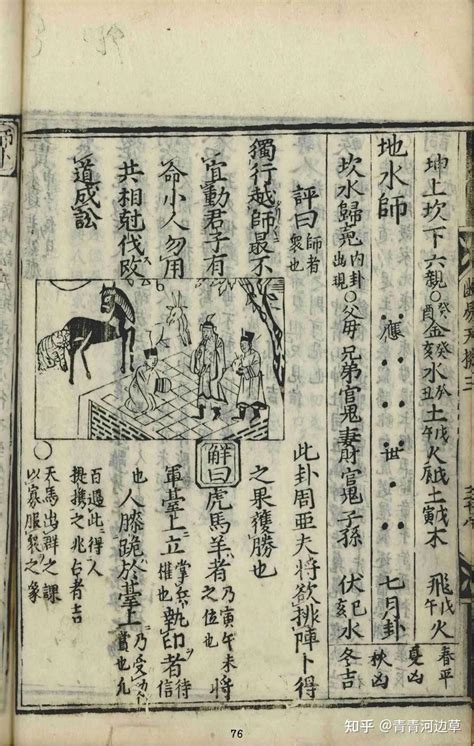 坤上坎下六親○癸酉金癸亥水癸丑土戊午火戊辰土戊寅木 飛戊午火 春平
夏凶
地水師 應 世 七月卦 秋凶
坎水歸䰟內卦出現○父母兄弟官鬼妻財官鬼子孫 伏巳亥水 冬吉
評曰師者衆也
此卦周亞夫將欲排陣卜得
獨行越師最不
之果獲勝也
宜動君子有
解曰虎馬羊者乃寅午未之位也將
命小人勿用
軍臺上立掌兵權也執印者待信
共相尅伐改
也人膝跪於臺上乃受功賞也
道成訟
過此得人
提携之兆占者吉
○天馬出群之課
以寡服衆之象
76
知乎 @青青河边草